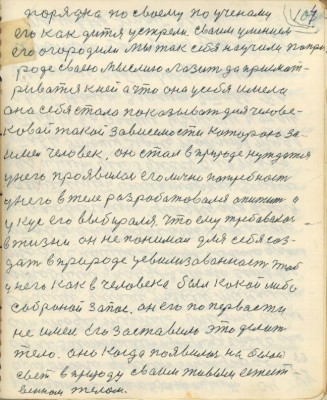 104
порядка по своему по ученому
его как дитя устрели. своим умением
его огородили мы так себя научили по при
роде своею мыслию лазит да присмат-
риватся к ней а что она у себя имела
она себя стала показыват для челове-
ковай такой зависимости которою за-
имел человек. он стал в природе нуждатся
у него проявилас его лично потребност
у него в теле разработовался апетит а
укус его выбирался. что ему требовалос
в жизни он не понимал для себя соз-
дат в природе цевилизованност. чтоб
у него как в человека был какой либо
собраной запас. он его по первости
не имел его заставило это делат
тело. оно когда появилос на белой
свет в природу своим живым естест-
венном телом.